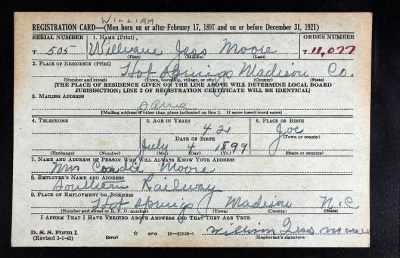 WILLIAM
REGISTRATION CARD—(Men born on or after February 17, 1897 and on or before December 31, 1921)
SERIAL NUMBER 1. NAME (Print) ORDER NUMBER
T 505 Jess Moore 11,077
2. PLACE OF RESIDENCE (Print)
Hot Springs Madison Co.
(Number and street) (Town, township, village, or city) (County) (State)
[THE PLACE OF RESIDENCE GIVEN ON THE LINE ABOVE WILL DETERMINE LOCAL BOARD
JURISDICTION; LINE 2 OF REGISTRATION CERTIFICATE WILL BE IDENTICAL]
3. MAILING ADDRESS
Same
[Mailing address if other than place indicated on line 2. If same insert word same]
4. TELEPHONE 5. AGE IN YEARS 6. PLACE OF BIRTH
42 Joe
DATE OF BIRTH (Town or county)
July 4 1899
(Exchange) (Number) (Mo.) (Day) (Yr.) (State or country)
7. NAME AND ADDRESS OF PERSON WHO WILL ALWAYS KNOW YOUR ADDRESS
Mrs Candie Moore
8. EMPLOYER'S NAME AND ADDRESS
Southern Railway
9. PLACE OF EMPLOYMENT OR BUSINESS
Hot Springs Madison N.C
(Number and street or R. F. D. number) (Town) (County) (State)
I AFFIRM THAT I HAVE VERIFIED ABOVE ANSWERS AND THAT THEY ARE TRUE.
D. S. S. Form 1 William Jess Moore
(Revised 1-1-42) (over) (Registrant's signature)